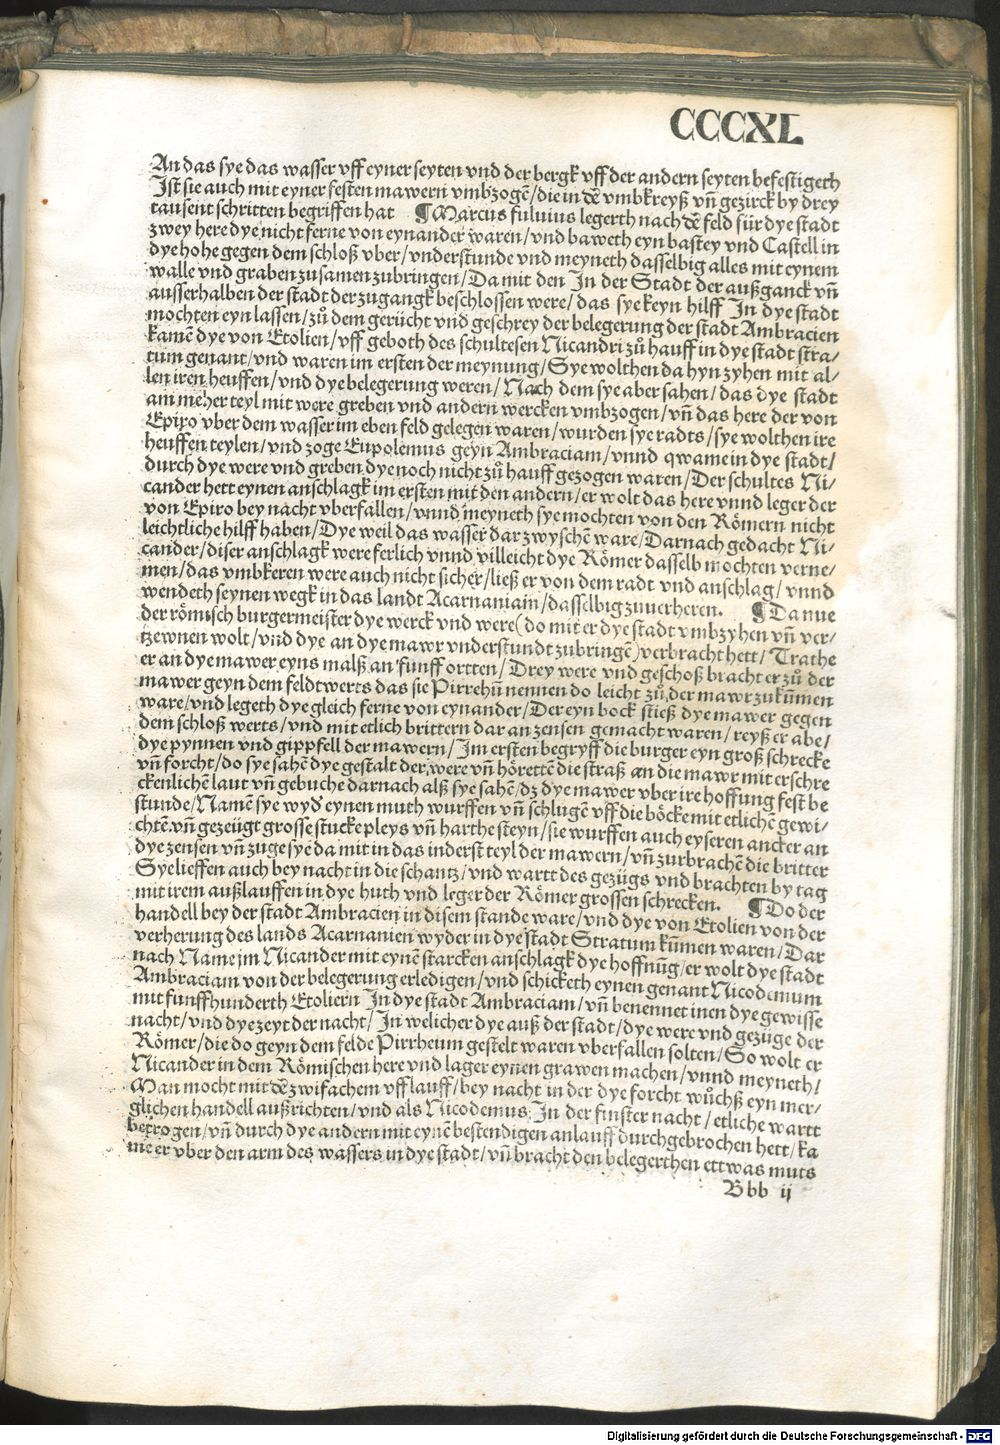 CCCXL
An das sye das wasser vff eyner seyten vnd der bergk vff der andern seyten befestigeth
Ist sie auch mit eyner festen mawern vmbzogē/die in dē vmbkreyß vñ gezirck by drey
tausent schritten begriffen hat ¶ Marcus fuluius legerth nach dē feld für dye stadt
zwey here dye nicht ferne von eynander waren/vnd baweth eyn bastey vnd Castell in
dye hohe gegen dem schloß vber/vnderstunde vnd meyneth dasselbig alles mit eynem
walle vnd graben zusamen zubringen/Da mit den In der Stadt der außganck vñ
ausserhalben der stadt der zugangk beschlossen were/das sye keyn hilff In dye stadt
mochten eyn lassen/zů dem gerücht vnd geschrey der belegerung der stadt Ambracien
kamē dye von Etolien/vff geboth des schultesen Nicandri zů hauff in dye stadt stra/
tum genant/vnd waren im ersten der meynung/Sye wolthen da hyn zyhen mit al/
len iren heuffen/vnd dye belegerung weren/Nach dem sye aber sahen/das dye stadt
am meher teyl mit were greben vnd andern wercken vmbzogen/vñ das here der von
Epiro vber dem wasser im eben feld gelegen waren/wurden sye radts/sye wolthen ire
heuffen teylen/vnd zoge Eupolemus geyn Ambraciam/vnnd qwame in dye stadt/
durch dye were vnd greben dye noch nicht zů hauff gezogen waren/Der schultes Ni/
cander hett eynen anschlagk im ersten mit den andern/er wolt das here vnnd leger der
von Epiro bey nacht vberfallen/vnnd meyneth sye mochten von den Römern nicht
leichtliche hilff haben/Dye weil das wasser dar zwyschē ware/Darnach gedacht Ni/
cander/diser anschlagk were ferlich vnnd villeicht dye Römer dasselb mochten verne/
men/das vmbkeren were auch nicht sicher/ließ er von dem radt vnd anschlag/vnnd
wendeth seynen wegk in das landt Acarnaniam/dasselbig zuuerheren. ¶ Da nue
der römisch burgermeister dye werck vnd were (do mit er dye stadt vmbzyhen vñ ver/
tzewnen wolt/vnd dye an dye mawr vnderstundt zubringē) verbracht hett/Trathe
er an dye mawer eyns malß an funff ortten/Drey were vnd geschoß bracht er zů der
mawer geyn dem feldtwerts das sie Pirrehū nennen do leicht zů der mawr zukūmen
ware/vnd legeth dye gleich ferne von eynander/Der eyn bock stieß dye mawer gegen
dem schloß werts/vnd mit etlich brittern dar an zensen gemacht waren/reyß er abe/
dye pynnen vnd gippfell der mawern/Im ersten begryff die burger eyn groß schrecke
vñ forcht/do sye sahē dye gestalt der were vñ hörettē die straß an die mawr mit erschre
ckenlichē laut vñ gebuche darnach alß sye sahē/dz dye mawer vber ire hoffung fest be
stunde/Namē sye wyd eynen muth wurffen vñ schlugē vff die böcke mit etlichē gewi/
chtē vñ gezeügt grosse stucke pleys vñ harthe steyn/sie wurffen auch eyseren ancker an
dye zensen vñ zuge sye da mit in das inderst teyl der mawern/vñ zurbrachē die britter
Sye lieffen auch bey nacht in die schantz/vnd wartt des gezügs vnd brachten by tag
mit irem außlauffen in dye huth vnd leger der Römer grossen schrecken. ¶ Do der
handell bey der stadt Ambracien in disem stande ware/vnd dye von Etolien von der
verherung des lands Acarnanien wyder in dye stadt Stratum kūmen waren/Dar
nach Name jm Nicander mit eynē starcken anschlagk dye hoffnūg/er wolt dye stadt
Ambraciam von der belegerung erledigen/vnd schicketh eynen genant Nicodemum
mit funffhunderth Etoliern In dye stadt Ambraciam/vñ benennet inen dye gewisse
nacht/vnd dye zeyt der nacht/In welicher dye auß der stadt/dye were vnd gezüge der
Römer/die do geyn dem felde Pirrheum gestelt waren vberfallen solten/So wolt er
Nicander in dem Römischen here vnd lager eynen grawen machen/vnnd meyneth/
Man mocht mit dē zwifachem vfflauff/bey nacht in der dye forcht wůchß eyn mer/
glichen handell außrichten/vnd als Nicodemus In der finster nacht/etliche wartt
betrogen/vñ durch dye andern mit eynē bestendigen anlauff durchgebrochen hett/ka
me er vber den arm des wassers in dye stadt/vñ bracht den belegerthen ettwas muts
Bbb ij
Digitalisierung gefördert durch die Deutsche Forschungsgemeinschaft - DFG